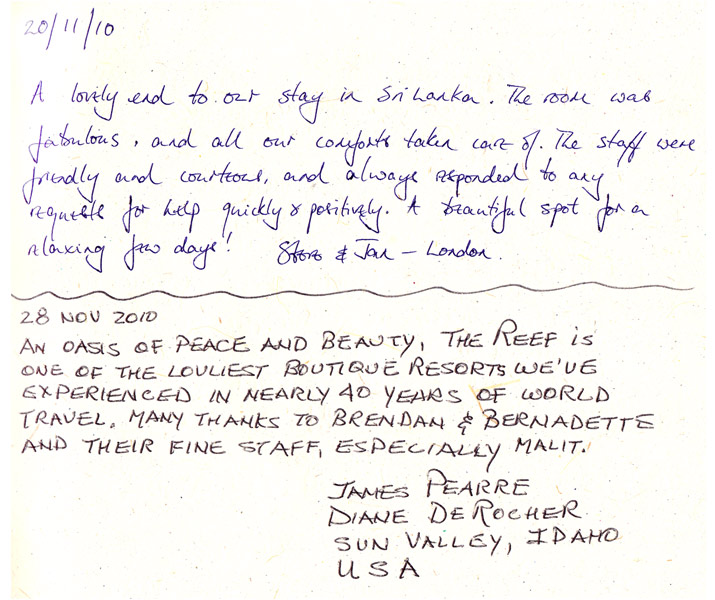 20/11/10
A lovely end to our stay in Sri Lanka. The room was
fabulous, and all our comforts taken care of. The staff were
friendly and courteous, and always responded to any
requests for help quickly & positively. A beautiful spot for a
relaxing few days! Steve & Jan - London.
28 NOV 2010
AN OASIS OF PEACE AND BEAUTY, THE REEF IS
ONE OF THE LOVLIEST BOUTIQUE RESORTS WE'VE
EXPERIENCED IN NEARLY 40 YEARS OF WORLD
TRAVEL. MANY THANKS TO BRENDAN & BERNADETTE
AND THEIR FINE STAFF, ESPECIALLY MALIT.
JAMES PEARRE
DIANE DEROCHER
SUN VALLEY, IDAHO
USA